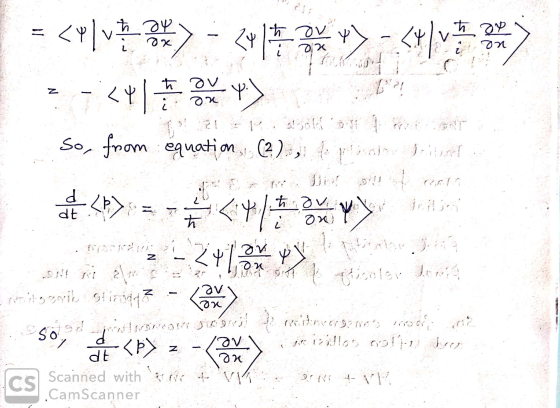 = <ψ|V ħ/i ∂ψ/∂x> - <ψ|ħ/i ∂V/∂x ψ> - <ψ|V ħ/i ∂ψ/∂x>
= - <ψ|ħ/i ∂V/∂x ψ>
So, from equation (2),
d/dt <p> = - i/ħ <ψ|ħ/i ∂V/∂x ψ>
= - <ψ|∂V/∂x ψ>
= - <∂V/∂x>
So, d/dt <p> = - <∂V/∂x>
CS Scanned with
CamScanner